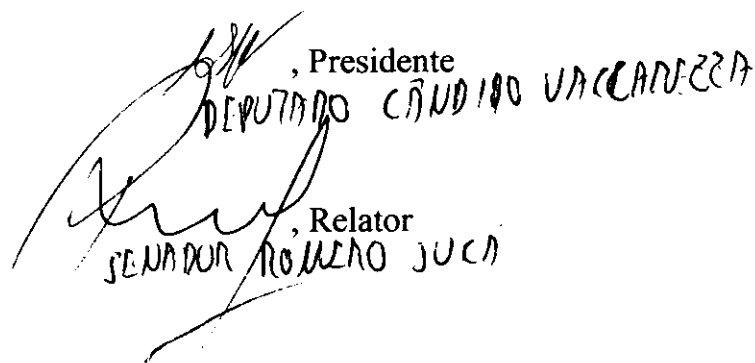 , Presidente
DEPUTADO CÂNDIDO VACCAREZZA
, Relator
SENADOR ROMERO JUCÁ